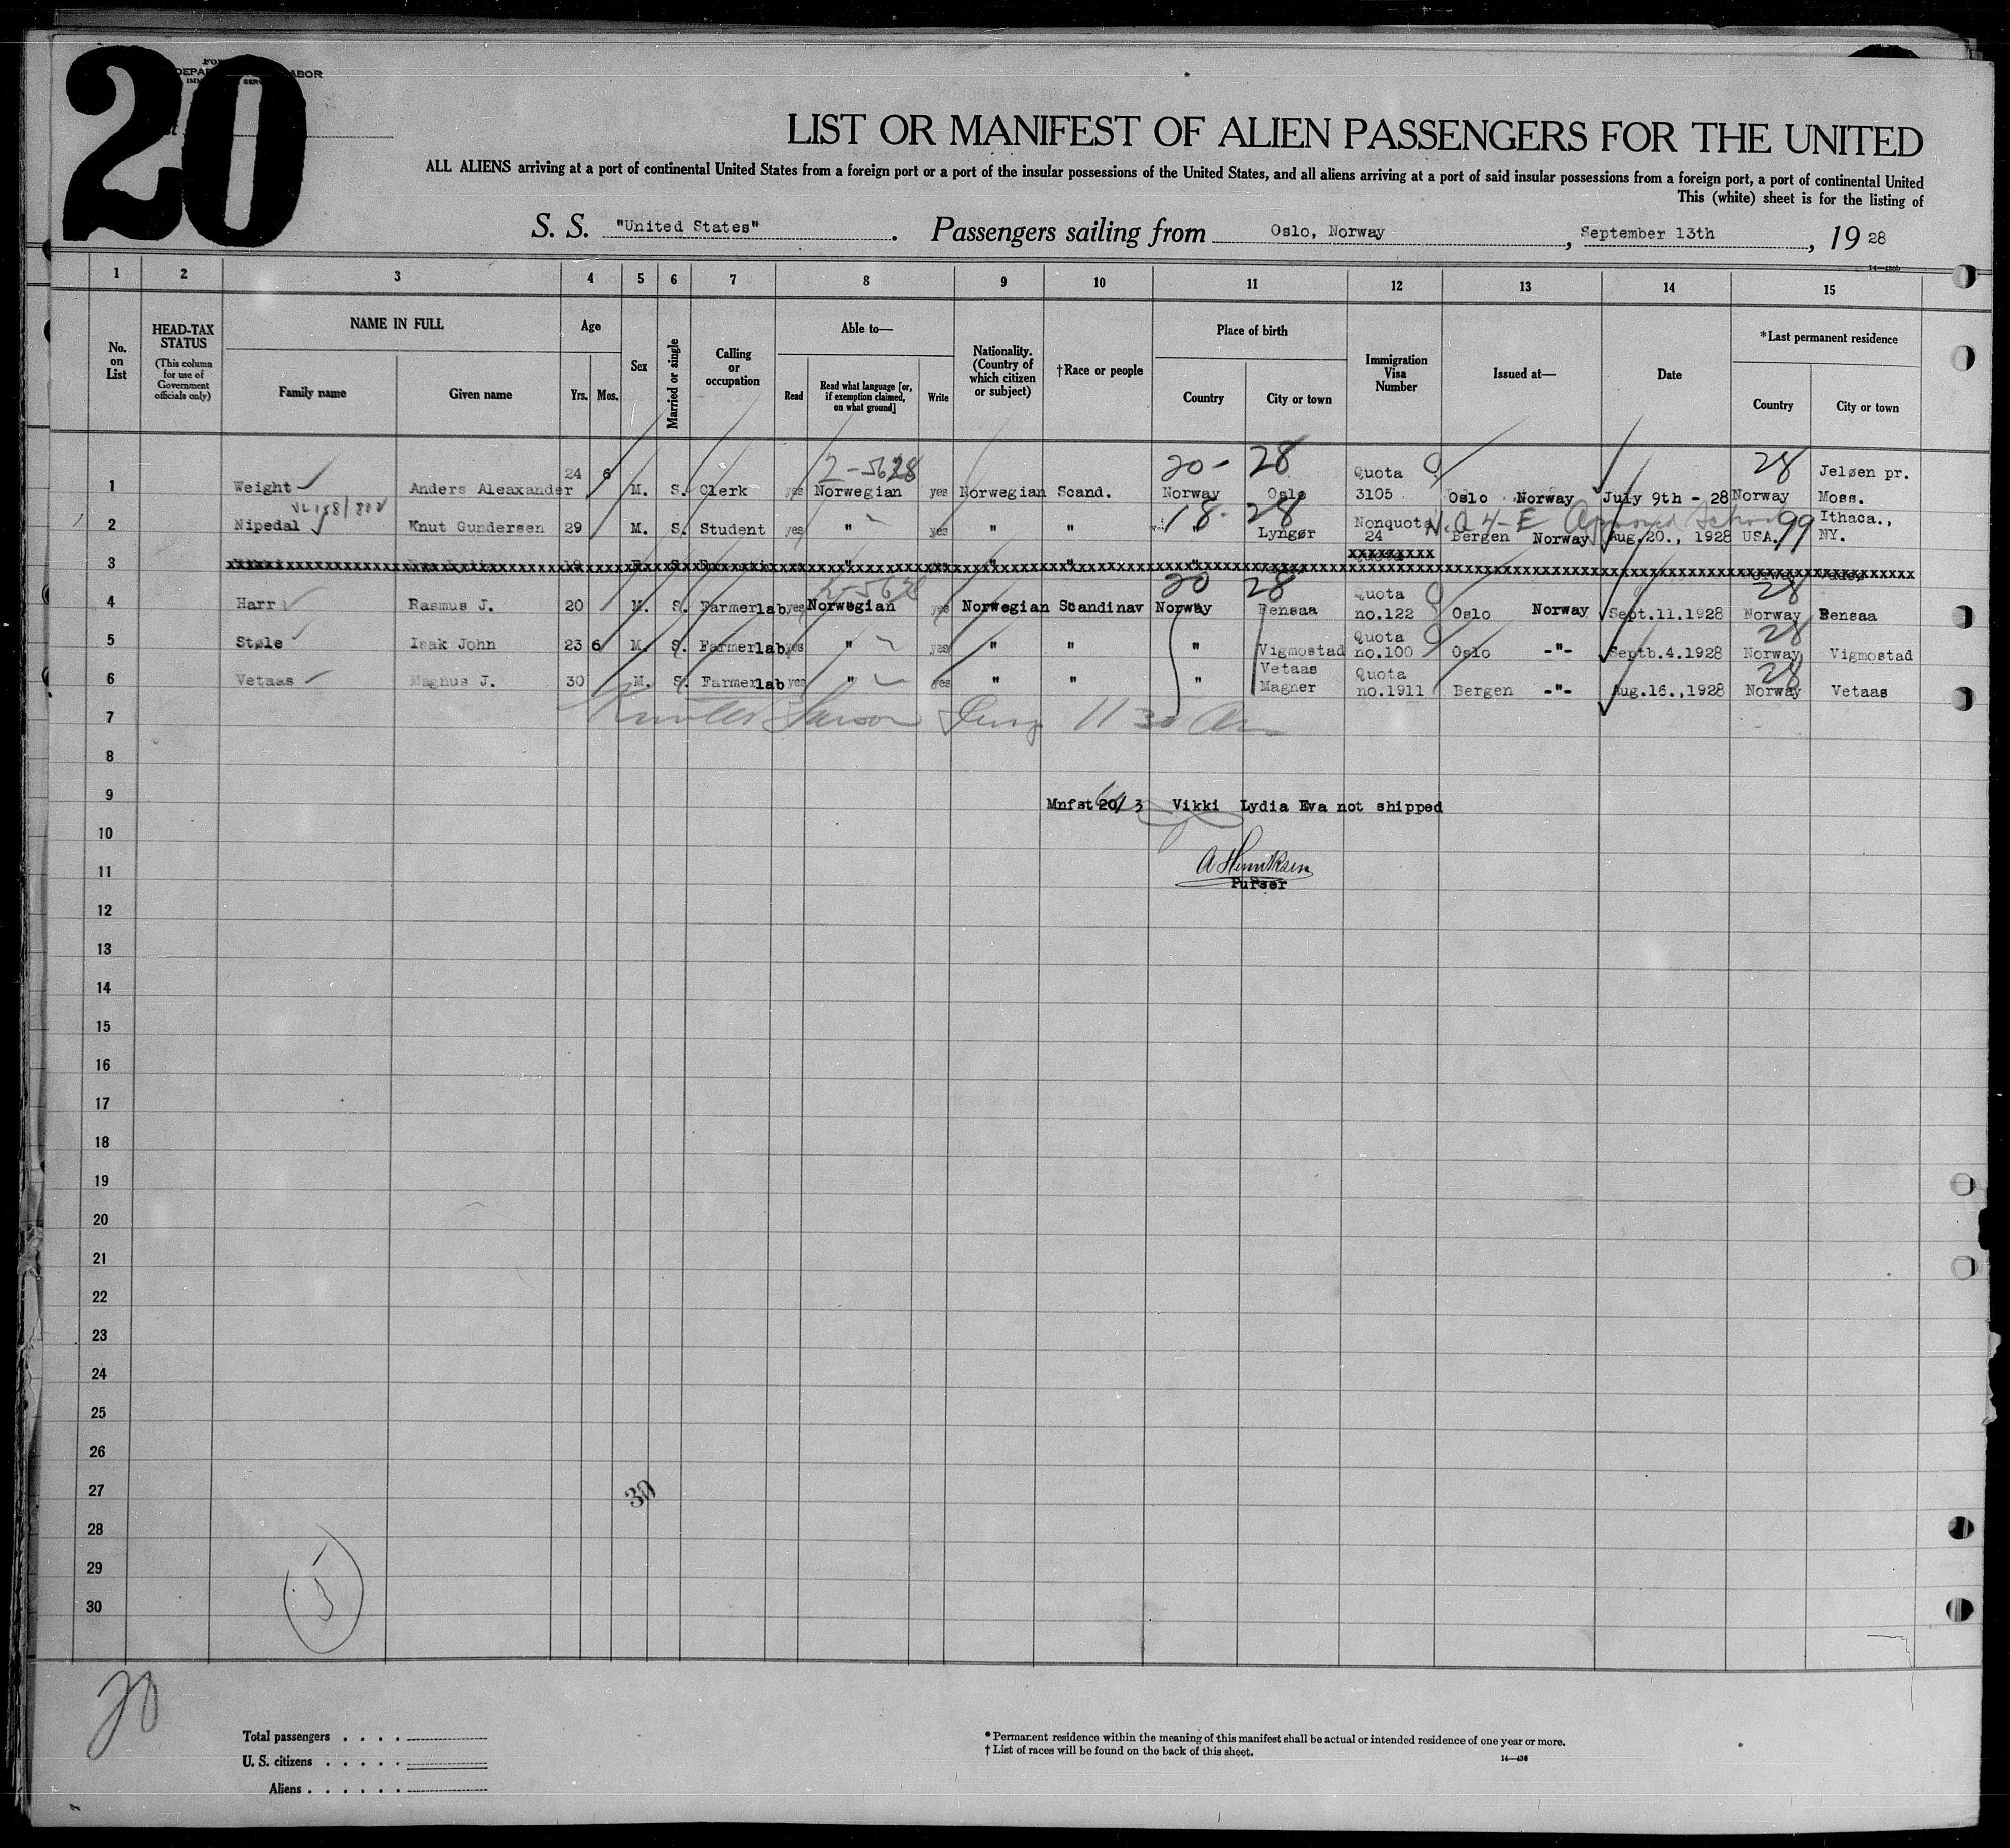 20
LIST OR MANIFEST OF ALIEN PASSENGERS FOR THE UNITED
ALL ALIENS arriving at a port of continental United States from a foreign port or a port of the insular possessions of the United States, and all aliens arriving at a port of said insular possessions from a foreign port, a port of continental United
This (white) sheet is for the listing of
S. S. "United States" . Passengers sailing from Oslo, Norway , September 13th , 19 28
1 2 3 4 5 6 7 8 9 10 11 12 13 14 15
No. on List
HEAD-TAX STATUS
(This column for use of Government officials only)
NAME IN FULL
Family name Given name
Age
Yrs. Mos.
Sex
Married or single
Calling or occupation
Able to—
Read Read what language [or, if exemption claimed, on what ground] Write
Nationality. (Country of which citizen or subject)
†Race or people
Place of birth
Country City or town
Immigration Visa Number
Issued at—
Date
*Last permanent residence
Country City or town
2-5628 20- 28 28
1 Weight Anders Aleaxander 24 6 M. S. Clerk yes Norwegian yes Norwegian Scand. Norway Oslo Quota 3105 Oslo Norway July 9th - 28 Norway Jeløen pr. Moss.
18- 28 99
2 Nipedal Knut Gundersen 29 M. S. Student yes " yes " " " Lyngør Nonquota 24 Bergen Norway Aug.20., 1928 USA. Ithaca., NY.
3
20 28 28
4 Harr Rasmus J. 20 M. S. Farmerlab yes Norwegian yes Norwegian Scandinav Norway Bensaa Quota no.122 Oslo Norway Sept.11.1928 Norway Bensaa
28
5 Støle Isak John 23 6 M. S. Farmerlab yes " yes " " " Vigmostad Quota no.100 Oslo -"- Septb.4.1928 Norway Vigmostad
28
6 Vetaas Magnus J. 30 M. S. Farmerlab yes " yes " " " Vetaas Magner Quota no.1911 Bergen -"- Aug.16.,1928 Norway Vetaas
7
8
9 Mnfst 20/ 3 Vikki Lydia Eva not shipped
10
11 A Henriksen
Purser
12
13
14
15
16
17
18
19
20
21
22
23
24
25
26
27 30
28
29
30
5
20
Total passengers . . . .
U. S. citizens . . . . .
Aliens . . . . . .
*Permanent residence within the meaning of this manifest shall be actual or intended residence of one year or more.
†List of races will be found on the back of this sheet.